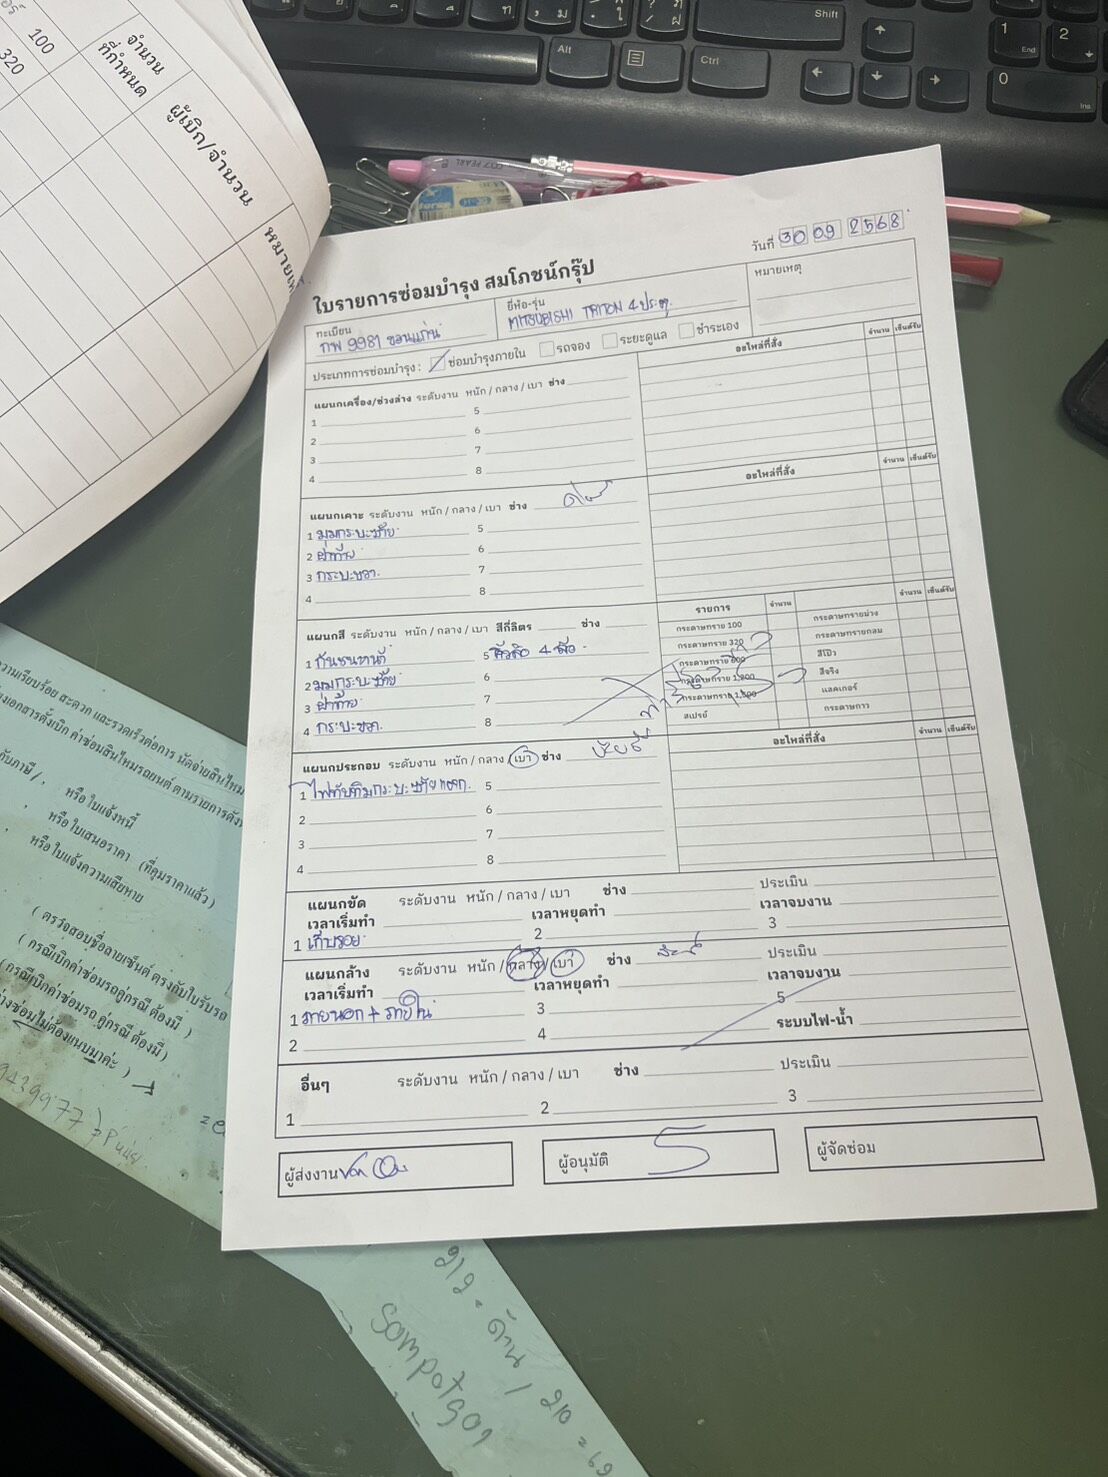 วันที่ 30 09 2568
ใบรายการซ่อมบำรุง สมโภชน์กรุ๊ป
ทะเบียน
กพ 9981 ขอนแก่น
ยี่ห้อ-รุ่น
MITSUBISHI TRITON 4 ประตู
หมายเหตุ
ประเภทการซ่อมบำรุง : ซ่อมบำรุงภายใน รถจอง ระยะดูแล ชำระเอง
แผนกเครื่อง/ช่วงล่าง ระดับงาน หนัก / กลาง / เบา ช่าง
อะไหล่ที่สั่ง จำนวน เซ็นต์รับ
1 5
2 6
3 7
4 8
แผนกเคาะ ระดับงาน หนัก / กลาง / เบา ช่าง
อะไหล่ที่สั่ง จำนวน เซ็นต์รับ
1 มุมกระบะซ้าย 5
2 ฝาท้าย 6
3 กระบะขวา 7
4 8
แผนกสี ระดับงาน หนัก / กลาง / เบา สีกี่ลิตร ช่าง
รายการ จำนวน จำนวน เซ็นต์รับ
1 กันชนหน้า 5 คิ้วล้อ 4 ล้อ
2 มุมกระบะซ้าย 6
3 ฝาท้าย 7
4 กระบะขวา 8
กระดาษทราย 100 กระดาษทรายม่วง
กระดาษทราย 320 กระดาษทรายกลม
กระดาษทราย 800 สีโป๊ว
กระดาษทราย 1,200 สีจริง
กระดาษทราย 1,500 แลคเกอร์
สเปรย์ กระดาษกาว
แผนกประกอบ ระดับงาน หนัก / กลาง / เบา ช่าง
อะไหล่ที่สั่ง จำนวน เซ็นต์รับ
1 ไฟทับทิมกระบะซ้ายแตก 5
2 6
3 7
4 8
แผนกขัด ระดับงาน หนัก / กลาง / เบา ช่าง ประเมิน
เวลาเริ่มทำ เวลาหยุดทำ เวลาจบงาน
1 เก็บรอย 2 3
แผนกล้าง ระดับงาน หนัก / กลาง / เบา ช่าง ประเมิน
เวลาเริ่มทำ เวลาหยุดทำ เวลาจบงาน
1 ภายนอก + ภายใน 3 5
2 4 ระบบไฟ-น้ำ
อื่นๆ ระดับงาน หนัก / กลาง / เบา ช่าง ประเมิน
1 2 3
ผู้ส่งงาน
ผู้อนุมัติ
ผู้จัดซ่อม
100
320
จำนวน
ที่กำหนด
ผู้เบิก/จำนวน
หรือ ใบแจ้งหนี้
หรือ ใบเสนอราคา (ที่คุมราคาแล้ว)
หรือ ใบแจ้งความเสียหาย
( ตรวจสอบชื่อลายเซ็นต์ ตรงกับใบรับรถ
( กรณีเบิกค่าซ่อมรถคู่กรณี ต้องมี )
Shift
Alt
Ctrl
1
End
2
0
Ins